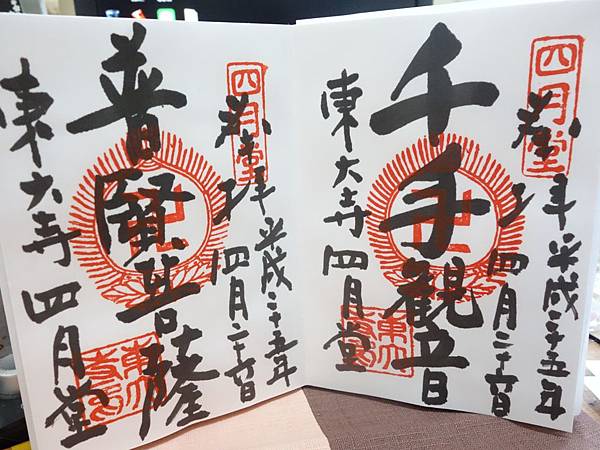 四月堂
奉拝 平成二十五年
四月二十六日
千手観音
東大寺 四月堂
四月堂
奉拝 平成二十五年
四月二十六日
普賢菩薩
東大寺 四月堂